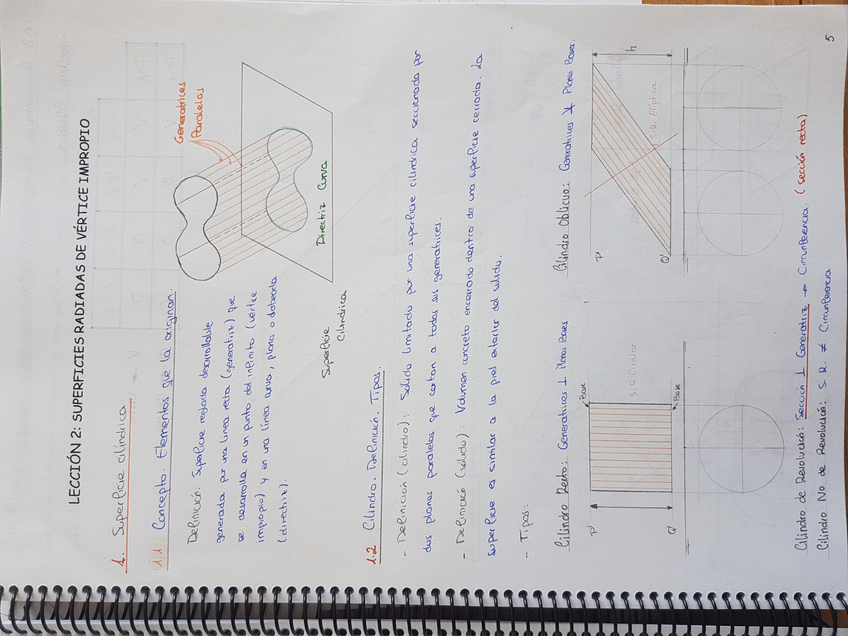 LECCIÓN 2: SUPERFICIES RADIADAS DE VÉRTICE IMPROPIO
1. Superficie cilíndrica.
1.1 Concepto. Elementos que la originan.
Definición: Superficie reglada desarrollable
generada por una linea recta (generatriz) que
se desarrolla en un punto del infinito (vértice
impropio) y en una línea curva, plana o alabeada
(directriz).
Generatrices
Paralelas
Directriz Curva
Superficie
Cilíndrica
1.2 Cilindro. Definición. Tipos.
- Definición (cilindro): Solido limitado por una superficie cilíndrica seccionada por
dos planos paralelos que cortan a todas sus generatrices.
- Definición (solido): Volumen concreto encerrado dentro de una superficie cerrada. La
superficie es similar a la piel exterior del solido.
- Tipos:
Cilindro Recto: Generatrices ⊥ Planos Bases
P'
Q'
Base
S.R. Circular
Base
Cilindro Oblicuo: Generatrices ⊥̸ Planos Bases.
P'
Q'
S.R. Elíptica
h
Cilindro de Revolución: Sección ⊥ Generatriz → Circunferencia (sección recta)
Cilindro No de Revolución: S.R. ≠ Circunferencia
5